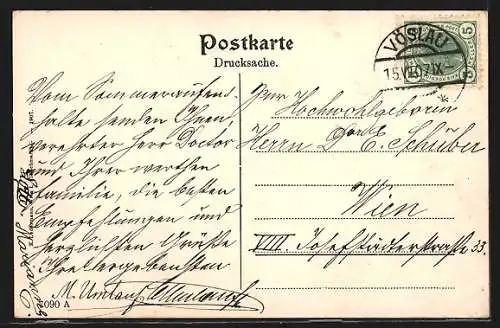 Postkarte
Drucksache.
VÖSLAU
5 5
Vom Sommeraufent-
halte senden Ihnen,
verehrter Herr Doctor
und Ihrer werthen
Familie, die besten
Empfehlungen und
herzlichsten Grüße
Ihre ergebensten
M. Umlauf
Hochwohlgeboren
Herrn Dr. E. Schuber
Wien
VIII. Josefstädterstrasse 33.
5090 A